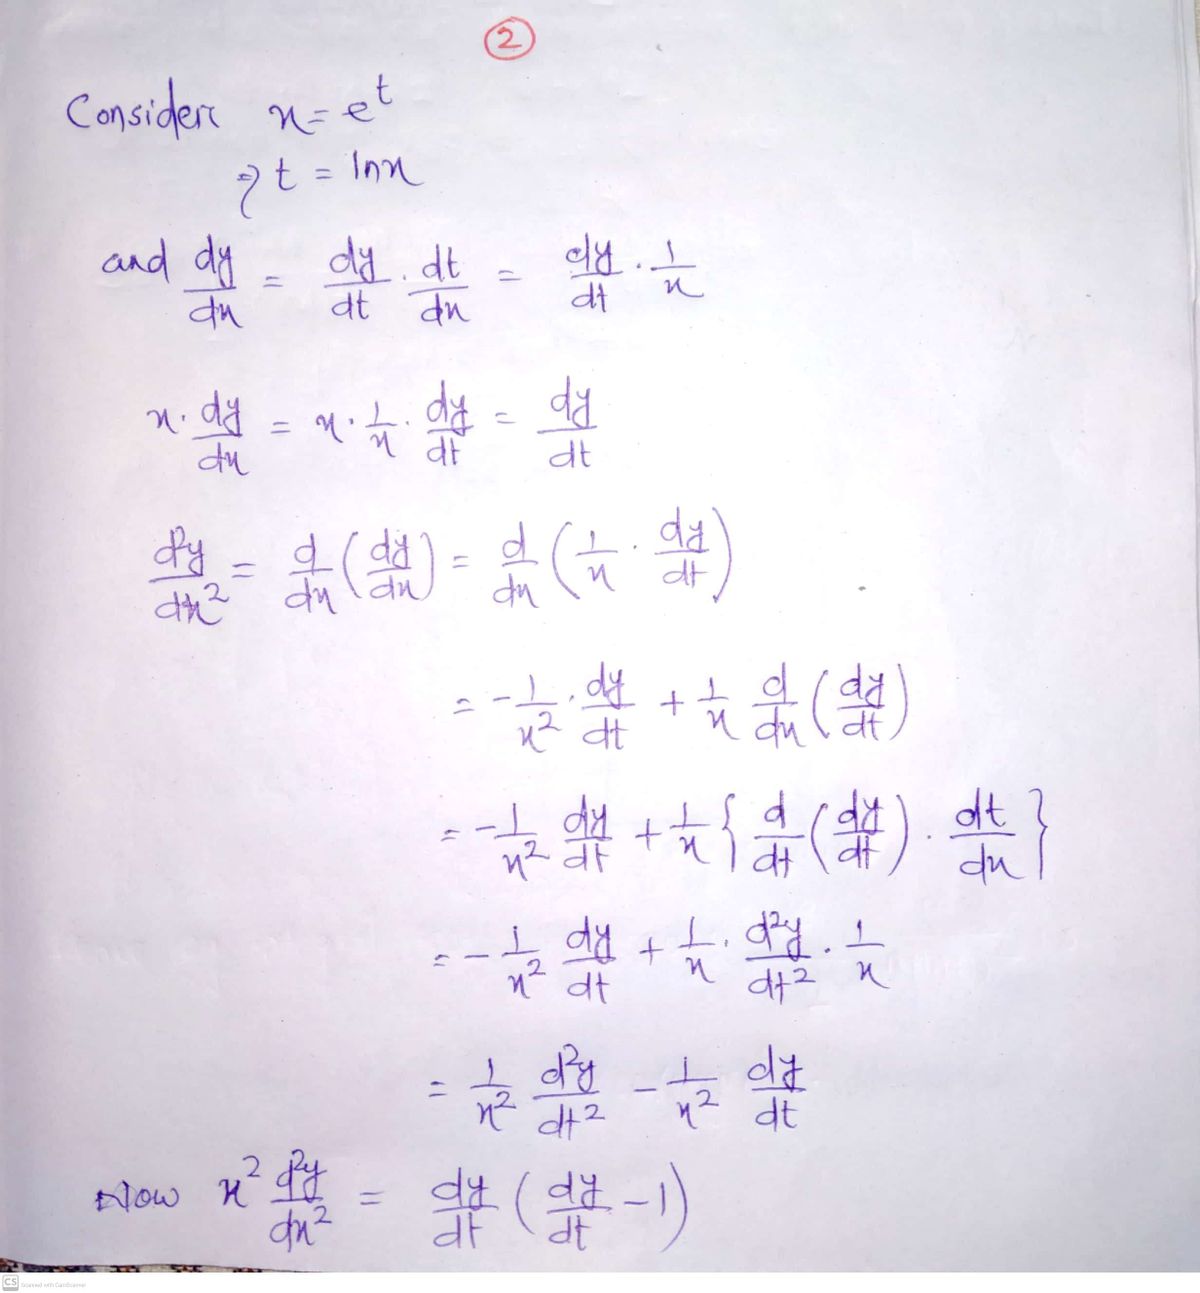 2
Consider x = e^t
⇒ t = lnx
and dy/dx = dy/dt · dt/dx = dy/dt · 1/x
x · dy/dx = x · 1/x · dy/dt = dy/dt
d²y/dx² = d/dx (dy/dx) = d/dx (1/x · dy/dt)
= -1/x² · dy/dt + 1/x d/dx (dy/dt)
= -1/x² dy/dt + 1/x { d/dt (dy/dt) · dt/dx }
= -1/x² dy/dt + 1/x · d²y/dt² · 1/x
= 1/x² d²y/dt² - 1/x² dy/dt
Now x² d²y/dx² = dy/dt (dy/dt - 1)
CS Scanned with CamScanner